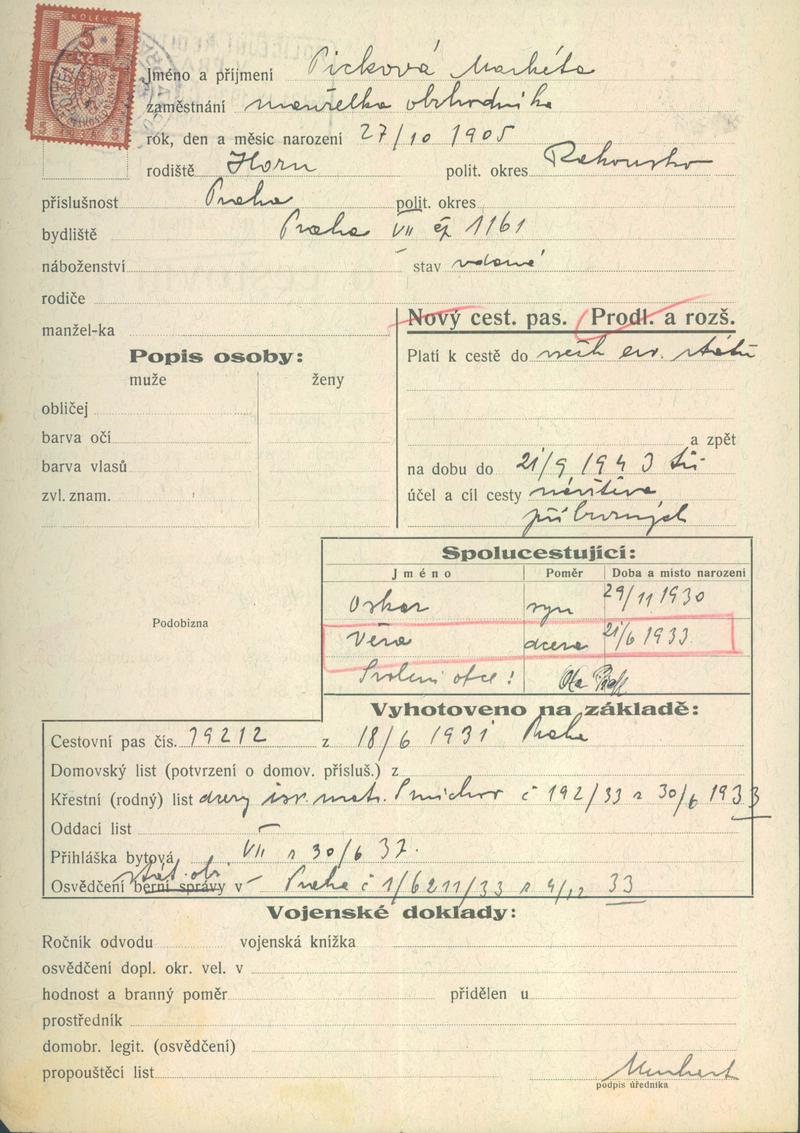 KOLEK
5
5 1936 5
Jméno a příjmení Picková Markéta
zaměstnání manželka obchodníka
rok, den a měsíc narození 27/10 1905
rodiště Horn polit. okres Rakousko
příslušnost Praha polit. okres
bydliště Praha VII čp 1161
náboženství stav vdaná
rodiče
manžel-ka
Nový cest. pas. Prodl. a rozš.
Popis osoby:
muže ženy
obličej
barva očí
barva vlasů
zvl. znam.
Platí k cestě do všech evr. států
a zpět
na dobu do 21/9 1943
účel a cíl cesty návštěva
příbuzných
Podobizna
Spolucestující:
Jméno Poměr Doba a místo narození
Oskar syn 29/11 1930
Věra dcera 21/6 1933
Svolení otce!
Vyhotoveno na základě:
Cestovní pas čís. 79212 z 18/6 1931 Praha
Domovský list (potvrzení o domov. přísluš.) z
Křestní (rodný) list dcery isr. mat. Smíchov č 192/33 z 30/6 1933
Oddací list
Přihláška bytová VII z 30/6 37.
stát. ob.
Osvědčení berní správy v Praha č 1/6211/33 z 4/12 33
Vojenské doklady:
Ročník odvodu vojenská knížka
osvědčení dopl. okr. vel. v
hodnost a branný poměr přidělen u
prostředník
domobr. legit. (osvědčení)
propouštěcí list
podpis úředníka